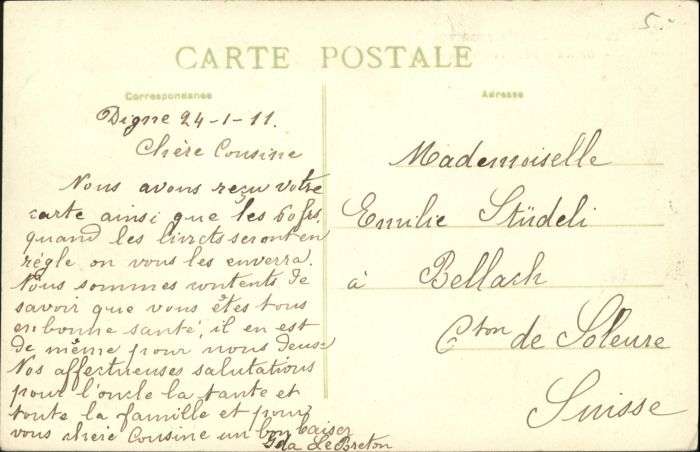 5.-
CARTE POSTALE
Correspondance
Adresse
Digne 24-1-11.
Chère Cousine
Nous avons reçu votre
carte ainsi que les 60 frs,
quand les livrets seront en
règle on vous les enverra.
Nous sommes contents de
savoir que vous êtes tous
en bonne santé, il en est
de même pour nous deux
Nos affectueuses salutations
pour l'oncle la tante et
toute la famille et pour
vous chère Cousine un bon baiser
Ida Le Breton
Mademoiselle
Emilie Stüdeli
à Bellach
Cton de Soleure
Suisse